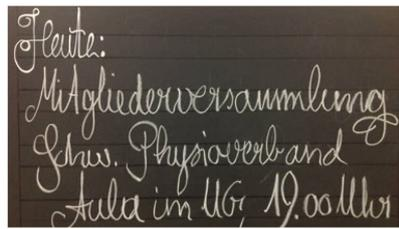 Heute:
Mitgliederversammlung
Schw. Physioverband
Aula im UG, 19.00 Uhr